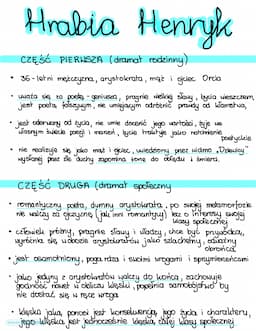 Hrabia Henryk
CZĘŚĆ PIERWSZA (dramat rodzinny)
• 36-letni mężczyzna, arystokrata, mąż i ojciec Orcia
• uważa się za poetę-geniusza, pragnie wielkiej sławy, bycia wieszczem,
jest poetą fałszywym, nie umiejącym odróżnić prawdy od kłamstwa,
• jest oderwany od życia, nie umie docenić jego wartości, żyje we
własnym świecie poezji i marzeń, życie traktuje jako natchnienie
poetyckie
• nie realizuje się jako mąż i ojciec, uwiedziony przez widmo "Dziewicy"
wysłanej przez złe duchy zapomina żonę do obłędu i śmierci.
CZĘŚĆ DRUGA (dramat społeczny
• romantyczny poeta, dumny arystokrata, po swojej metamorfozie
nie walczy za ojczyznę (jak inni romantycy) lecz o interesy swojej
własnej społecznej
• człowiek próżny, pragnie sławy i władzy, chce być przywódcą,
wyróżnia się w obozie arystokratów jako szlachetny, odważny
obrońca,
• jest osamotniony, poga rdza i swoimi wrogami i sprzymierzeńcami
• jako jedyny z arystokratów walczy do końca, zachowuje
godność nawet w obliczu klęski, popełnia samobójstwo by
nie dostać się w ręce wroga
• klęska jaką ponosi jest konsekwencją jego życia i charakteru,
jego klęska jest jednocześnie klęską całej klasy społecznej